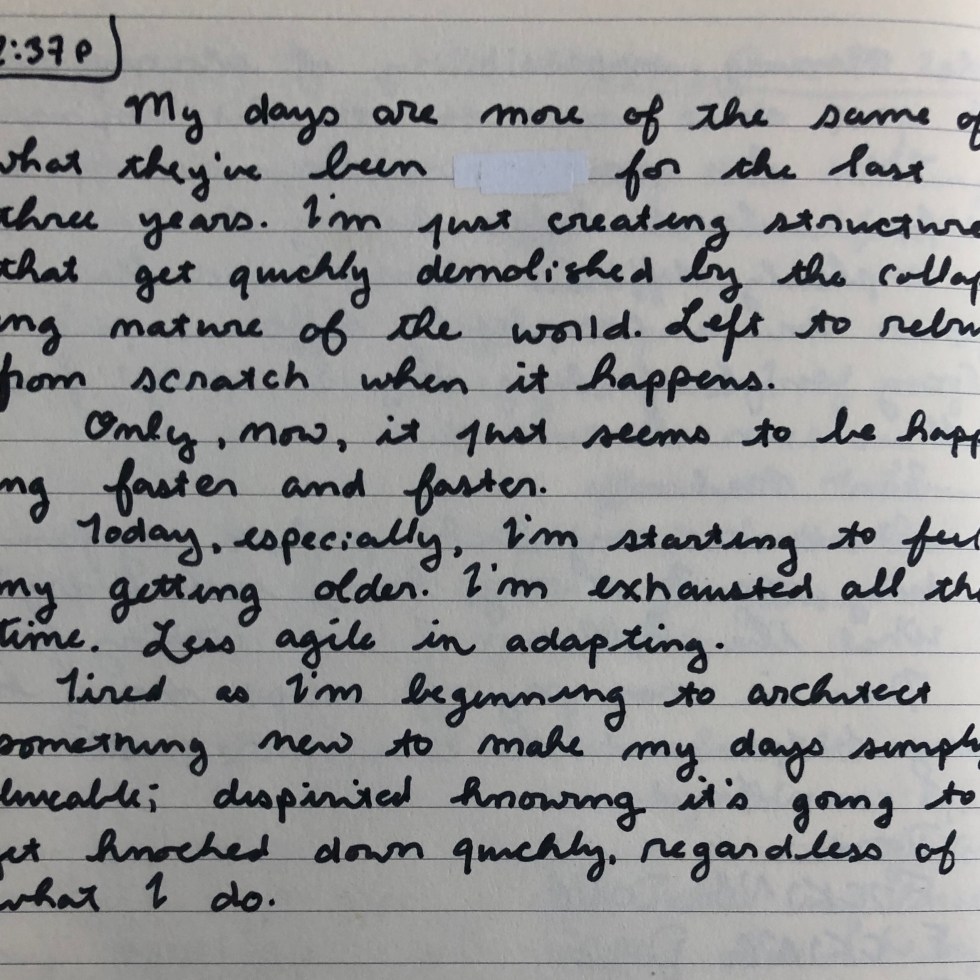 2:37P
My days are more of the same of
what they've been for the last
three years. I'm just creating structure
that get quickly demolished by the collap
ing nature of the world. Left to rebu
from scratch when it happens.
Only, now, it just seems to be happ
ng faster and faster.
Today, especially, I'm starting to feel
my getting older. I'm exhausted all the
time. Less agile in adapting.
Tired as I'm beginning to architect
something new to make my days simply
liveable; dispirited knowing it's going to
get knocked down quickly, regardless of
what I do.